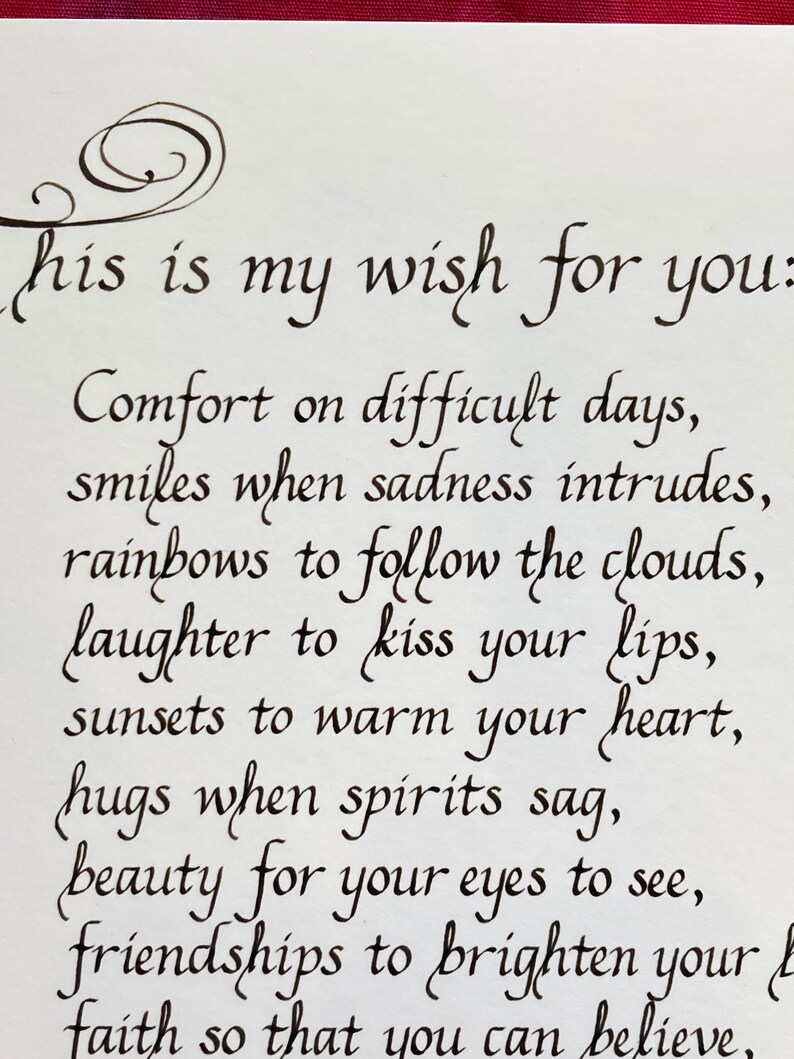 his is my wish for you:
Comfort on difficult days,
smiles when sadness intrudes,
rainbows to follow the clouds,
laughter to kiss your lips,
sunsets to warm your heart,
hugs when spirits sag,
beauty for your eyes to see,
friendships to brighten your
faith so that you can believe,